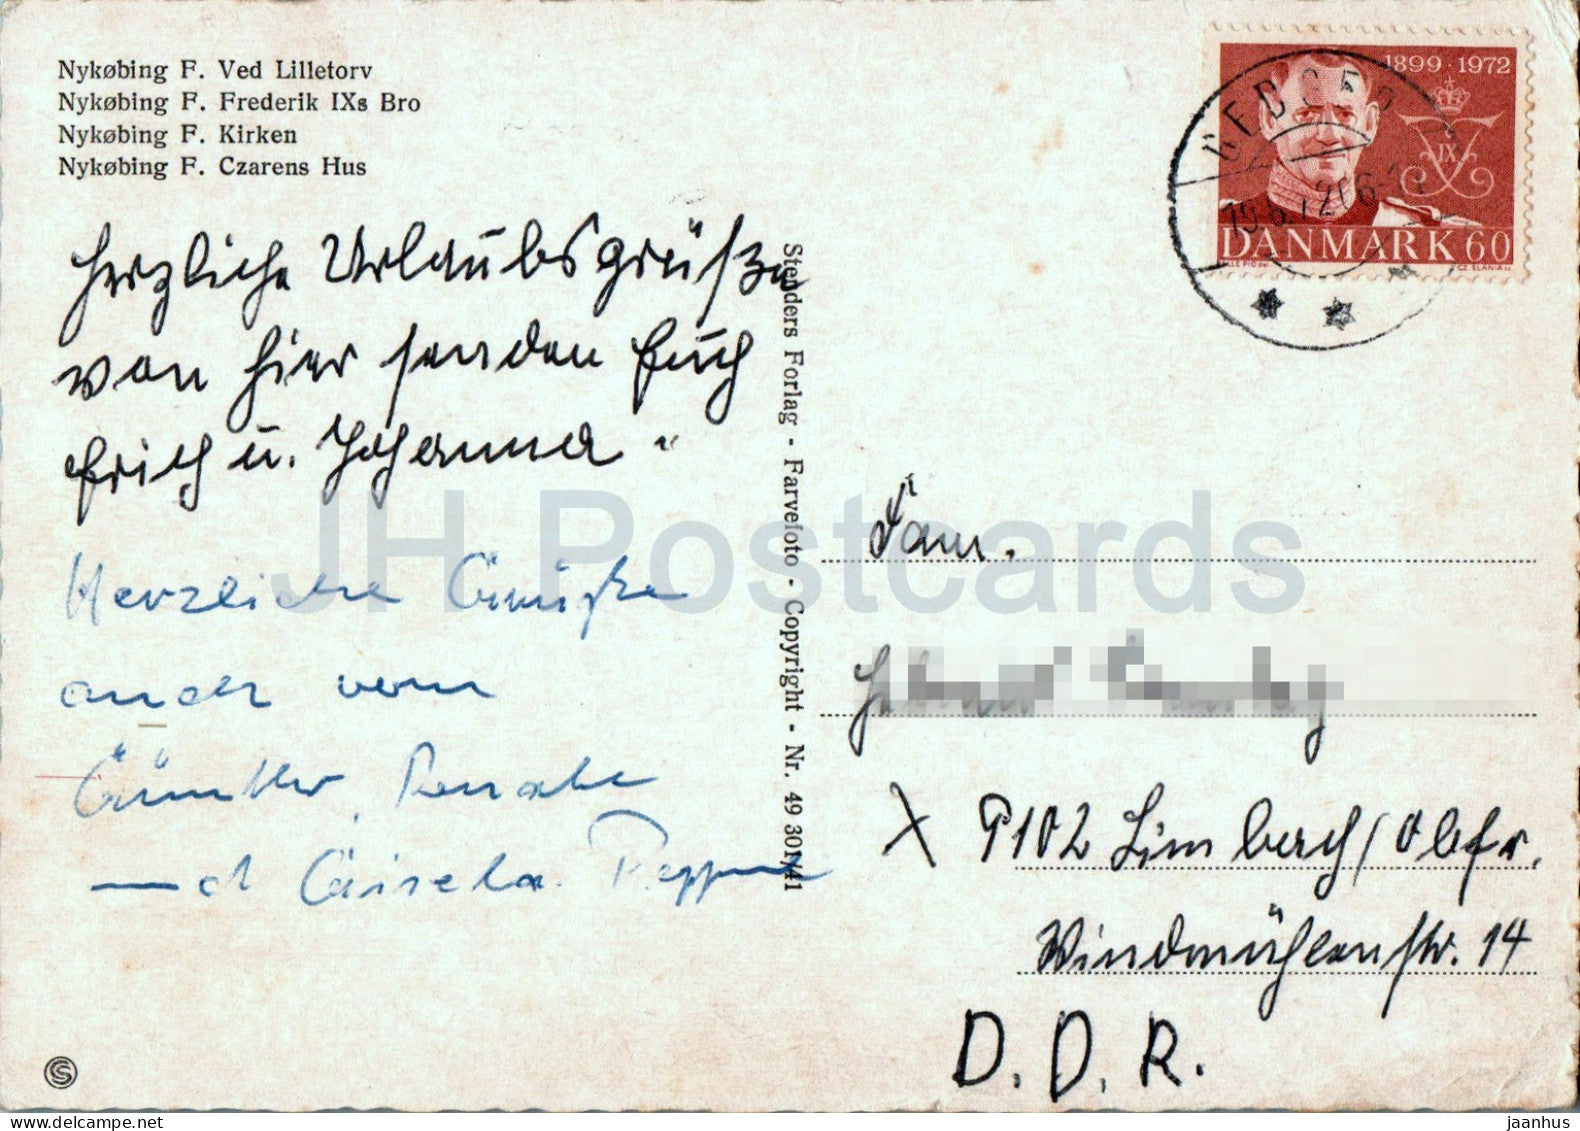 Nykøbing F. Ved Lilletorv
Nykøbing F. Frederik IXs Bro
Nykøbing F. Kirken
Nykøbing F. Czarens Hus
Herzliche Urlaubsgrüße
von hier senden Euch
Erich u. Johanna"
Herzliche Grüße
auch vom
Günther, Renate
und Gisela
Stenders Forlag - Farvefoto - Copyright - Nr. 49 301/41
1899 · 1972
IX
DANMARK 60
CZ. SLANIA
GEDSER
Fam.
X 9102 Limbach/Obfr.
Windmühlenstr. 14
D.D.R.
JH Postcards
www.delcampe.net
jaanhus